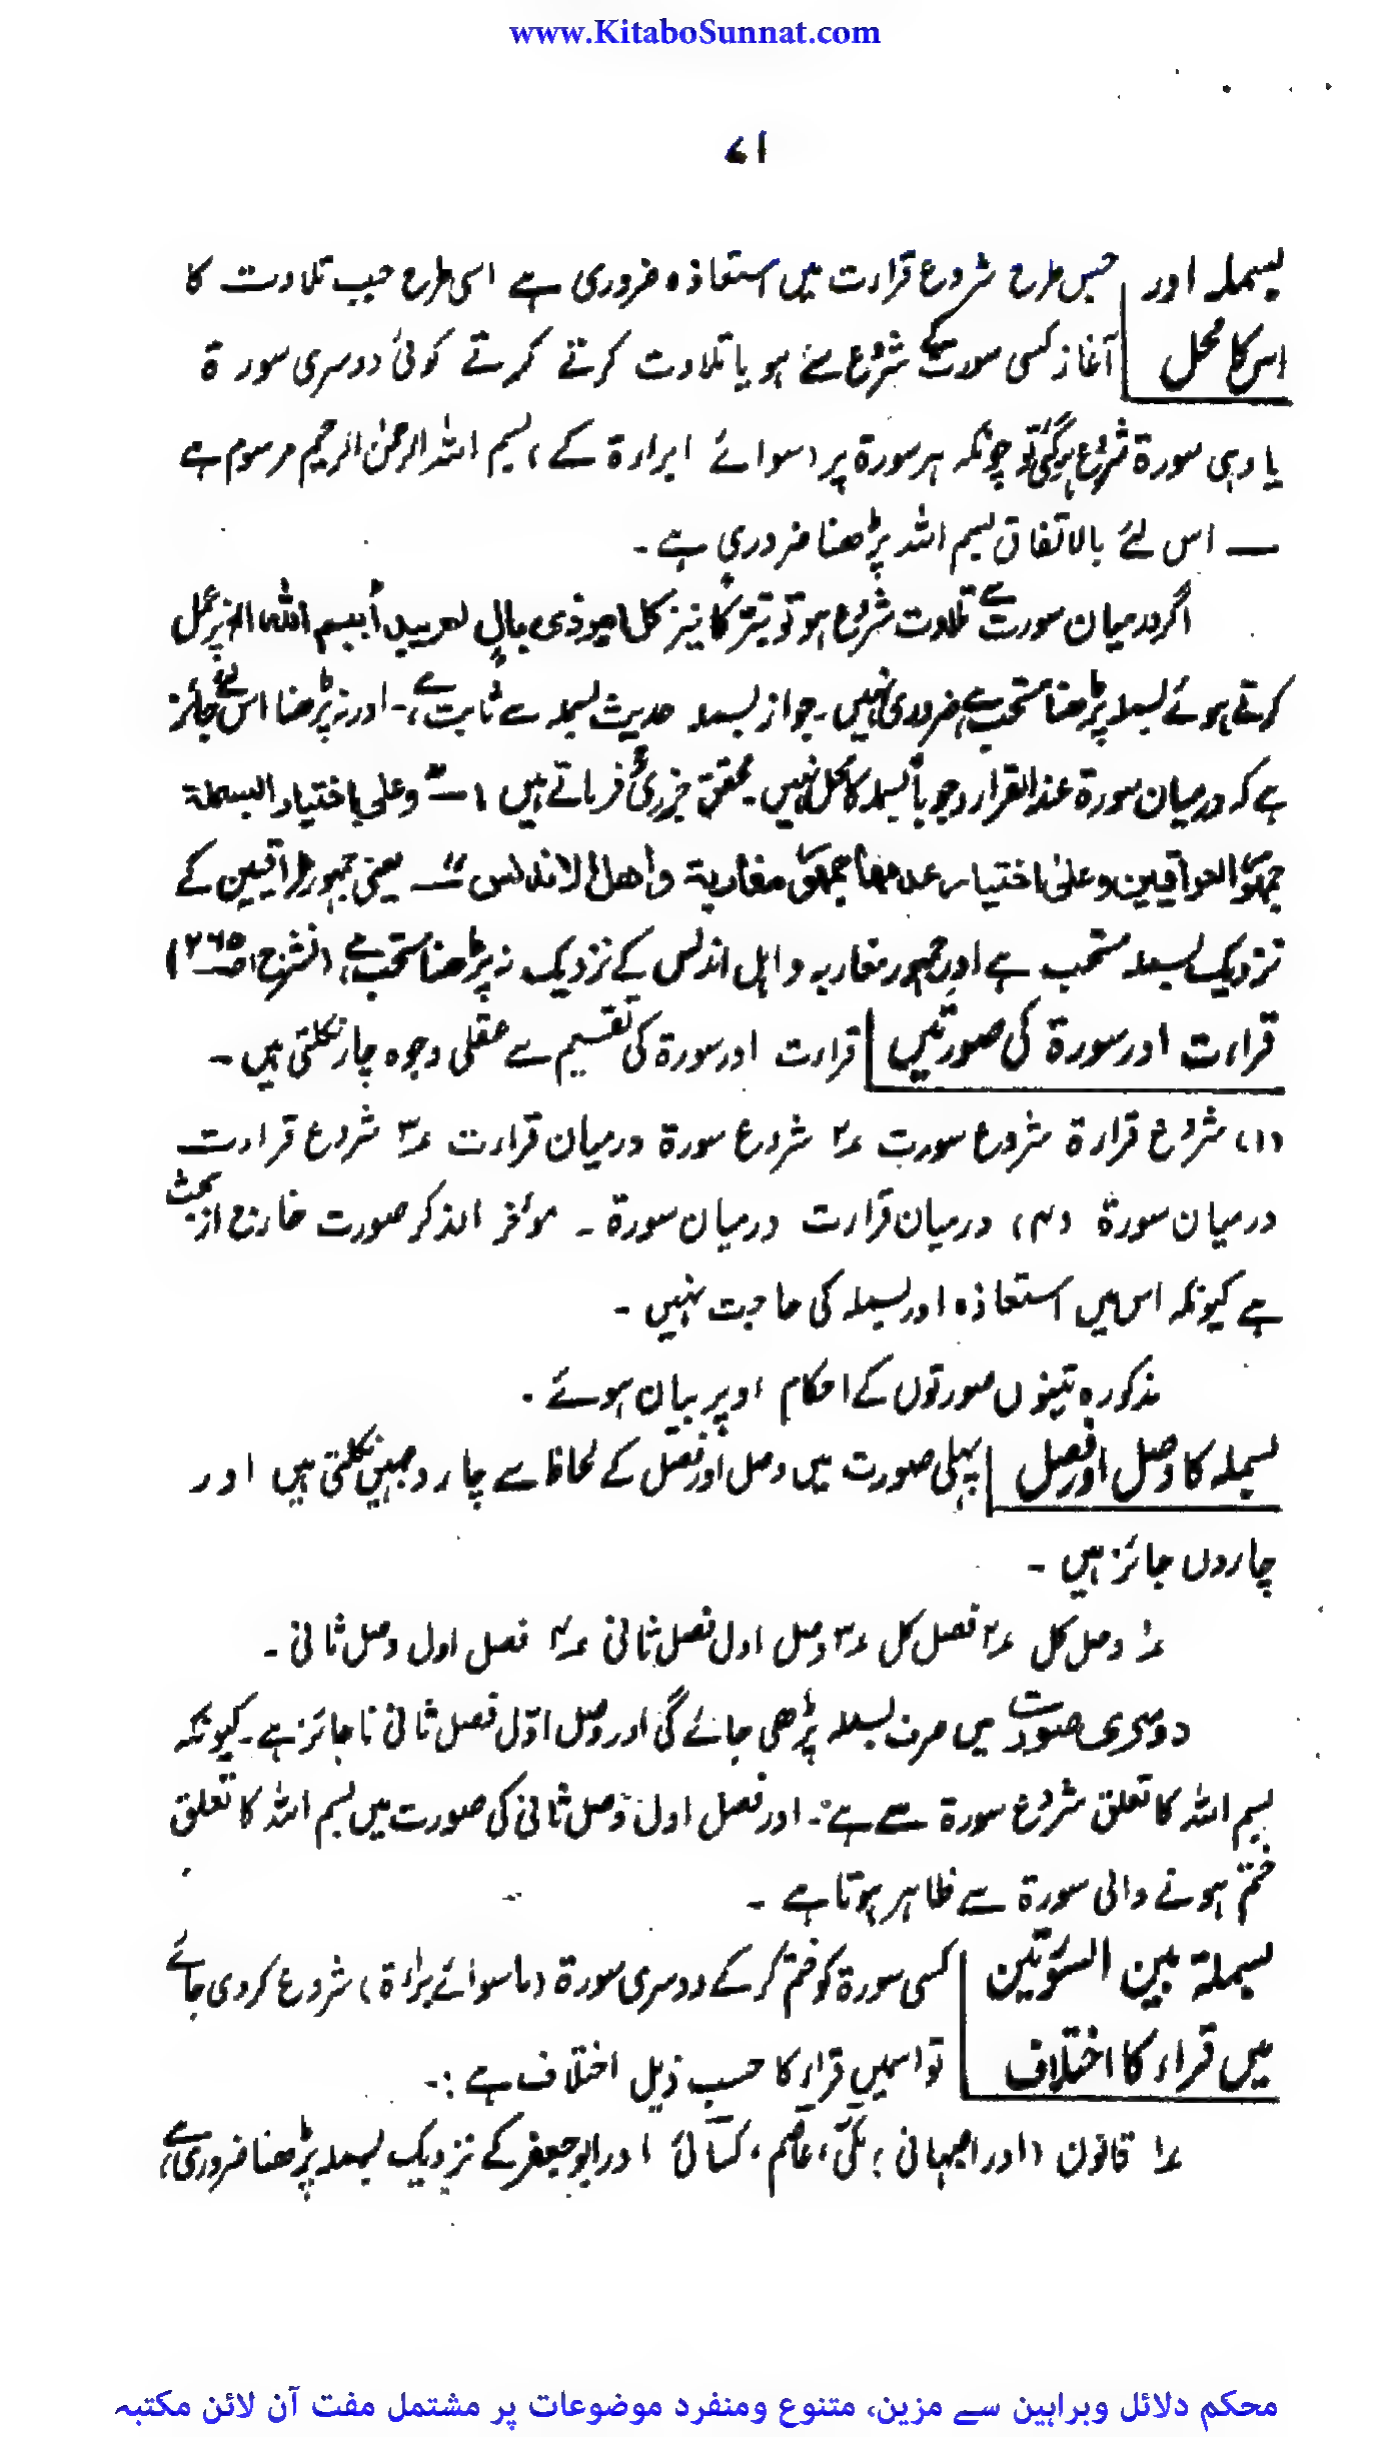 www.KitaboSunnat.com
۷۱
بسملہ اور جس طرح شروع قراءت میں استعاذہ ضروری ہے اسی طرح جب تلاوت کا
اس کا محل آغاز کسی سورت کے شروع سے ہو یا تلاوت کرتے کرتے کوئی دوسری سورۃ
یا وہی سورۃ شروع ہوگئی تو چونکہ ہر سورۃ پر (سوائے براءۃ کے) بسم اللہ الرحمٰن الرحیم مرسوم ہے
— اس لئے بالاتفاق بسم اللہ پڑھنا ضروری ہے ۔
اگر درمیان سورت سے تلاوت شروع ہو تو تبرکاً نیز کل امر ذی بال لم یبدأ ببسم اللہ الخ پر عمل
کرتے ہوئے بسملہ پڑھنا مستحب ہے، ضروری نہیں ۔ جواز بسملہ حدیث بسملہ سے ثابت ہے، ۔ اور نہ پڑھنا اس لئے جائز
ہے کہ درمیان سورۃ عند القراء وجوباً بسملہ کا محل نہیں ۔ محقق جزریؒ فرماتے ہیں :— "وعلی اختیار البسملة
جمهور العراقيين وعلى اختيار عدمها جمهور مغاربة وأهل الاندلس" — یعنی جمہور عراقیین کے
نزدیک بسملہ مستحب ہے اور جمہور مغاربہ و اہل اندلس کے نزدیک نہ پڑھنا مستحب ہے، (نشر ج۱ صـ ۲۶۵)
قراءت اور سورۃ کی صورتیں قراءت اور سورۃ کی تقسیم سے عقلی وجوہ چار نکلتی ہیں ۔
(۱) شروع قراءۃ شروع سورت ۲؎ شروع سورۃ درمیان قراءت ۳؎ شروع قراءت
درمیان سورۃ (۴) درمیان قراءت درمیان سورۃ ۔ مؤخر الذکر صورت خارج از بحث
ہے کیونکہ اس میں استعاذہ اور بسملہ کی حاجت نہیں ۔
مذکورہ تینوں صورتوں کے احکام اوپر بیان ہوئے ۔
بسملہ کا وصل اور فصل پہلی صورت میں وصل اور فصل کے لحاظ سے چار وجہیں نکلتی ہیں اور
چاروں جائز ہیں ۔
۱؎ وصل کل ۲؎ فصل کل ۳؎ وصل اول فصل ثانی ۴؎ فصل اول وصل ثانی ۔
دوسری صورت میں صرف بسملہ پڑھی جائے گی اور وصل اوّل فصل ثانی ناجائز ہے ۔ کیونکہ
بسم اللہ کا تعلق شروع سورۃ سے ہے ۔ اور فصل اول وصل ثانی کی صورت میں بسم اللہ کا تعلق
ختم ہونے والی سورۃ سے ظاہر ہوتا ہے ۔
بسملۃ بین السورتین کسی سورۃ کو ختم کر کے دوسری سورۃ (ماسوائے براءۃ) شروع کردی جائے
میں قراء کا اختلاف تو اسمیں قراء کا حسب ذیل اختلاف ہے :۔
۱؎ قالون (اور اصبہانی) مکیؒ، عاصمؒ، کسائیؒ اور ابوجعفر کے نزدیک بسملہ پڑھنا ضروری ہے،
محکم دلائل وبراہین سے مزین، متنوع ومنفرد موضوعات پر مشتمل مفت آن لائن مکتبہ